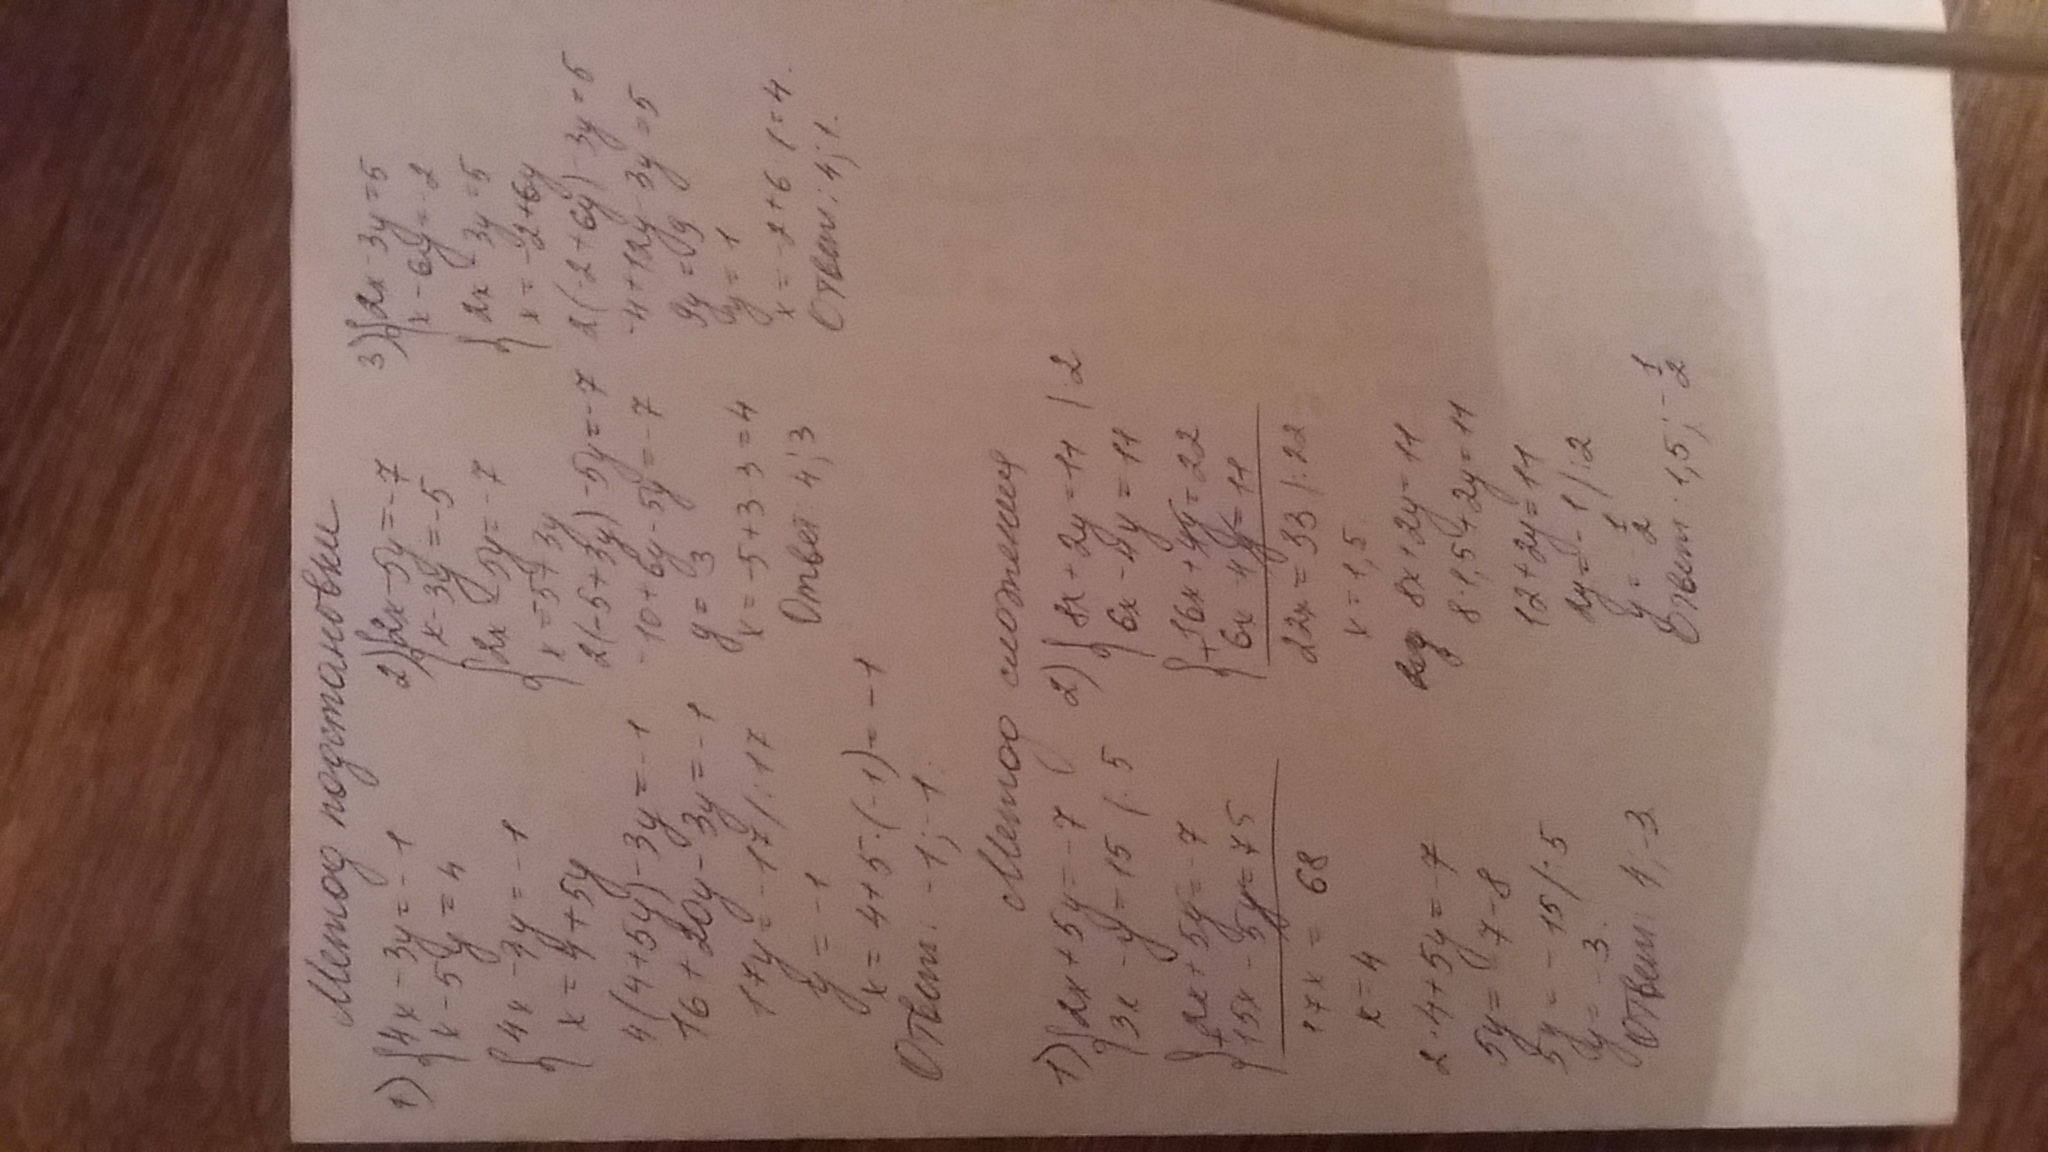 Метод подстановки
1) {4x - 3y = -1
x - 5y = 4
{4x - 3y = -1
x = 4 + 5y
4(4+5y) - 3y = -1
16 + 20y - 3y = -1
17y = -17 /:17
y = -1
x = 4 + 5·(-1) = -1
Ответ: -1; -1.
2) {2x - 5y = -7
x - 3y = -5
{2x - 5y = -7
x = -5 + 3y
2(-5+3y) - 5y = -7
-10 + 6y - 5y = -7
y = 3
x = -5 + 3·3 = 4
Ответ: 4; 3
3) {2x - 3y = 5
x - 6y = -2
{2x - 3y = 5
x = -2 + 6y
2(-2+6y) - 3y = 5
-4 + 12y - 3y = 5
9y = 9
y = 1
x = -2 + 6·1 = 4.
Ответ: 4; 1.
Метод сложения
1) {2x + 5y = -7
3x - y = 15 /·5
{+ 2x + 5y = -7
15x - 5y = 75
17x = 68
x = 4
2·4 + 5y = -7
5y = -7 - 8
5y = -15 /:5
y = -3.
Ответ: 4; -3
2) {8x + 2y = 11 /·2
6x - 4y = 11
{+ 16x + 4y = 22
6x - 4y = 11
22x = 33 /:22
x = 1,5.
8x + 2y = 11
8·1,5 + 2y = 11
12 + 2y = 11
2y = -1 /:2
y = -1/2
Ответ: 1,5; -1/2